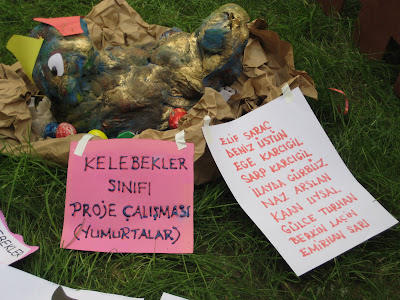 KELEBEKLER
SINIFI
PROJE ÇALIŞMASI
(YUMURTALAR)
ELİF SARAÇ
DENİZ ÜSTÜN
EGE KARCIGİL
SARP KARCIGİL
İLAYDA GÜRBÜZ
NAZ ARSLAN
KAAN UYSAL
GÜLCE TURHAN
BERKİN LAÇİN
EMİRHAN SARI